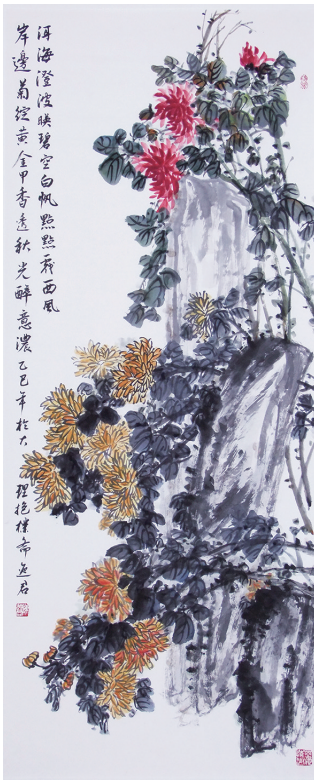 洱海澄波映碧空白帆點點戲西風
岸邊菊綻黃金甲香透秋光醉意濃乙巳年於大
理抱樸齋逸君